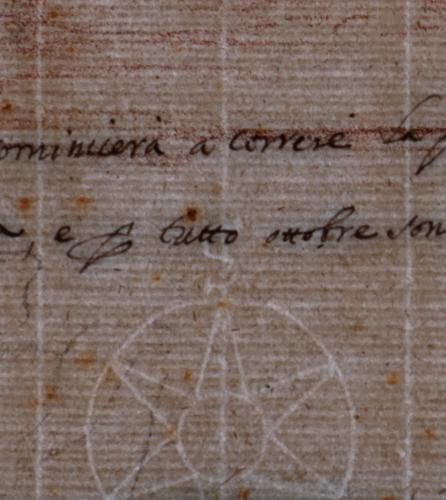 ominicerà a correre la
e p tutto ottobre son